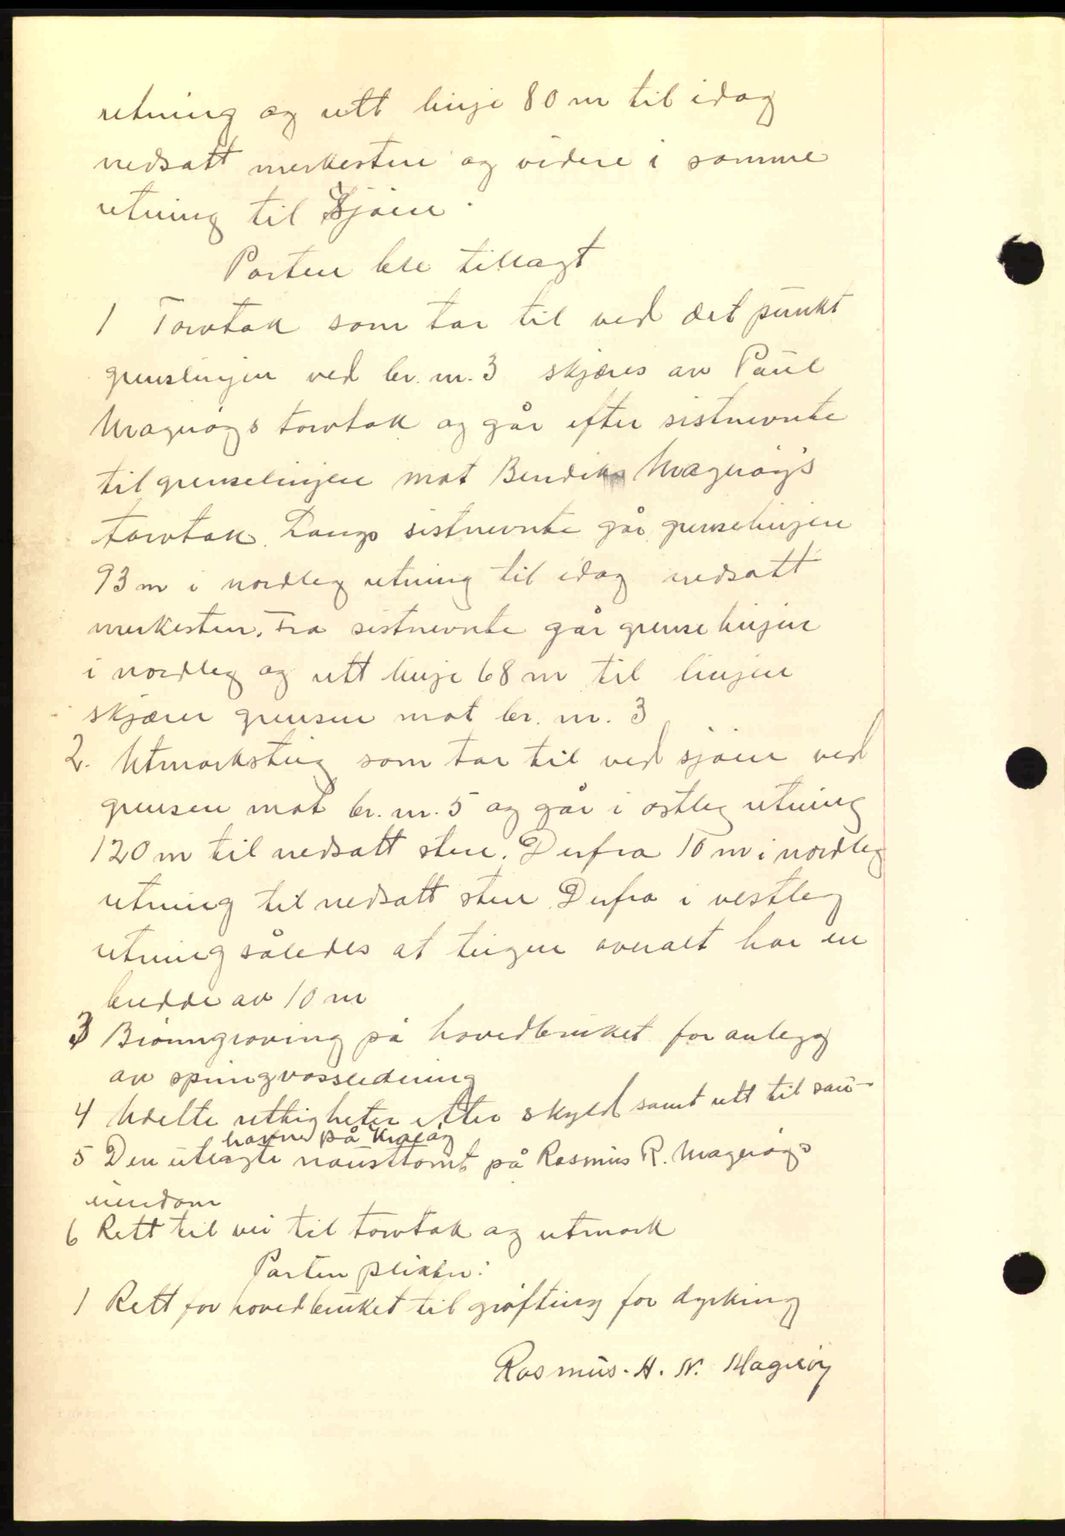 retning og rett linje 80 m til idag
nedsatt merkesten og videre i samme
retning til Sjøen.
Parten ble tillagt
1 Torvtak som tar til ved det punkt
grenslinjen ved br. nr. 3 skjæres av Paul
Magerøys torvtak og går efter sistnevnte
til grenselinjen mot Bendik Magerøy's
torvtak. Langs sistnevnte går grenselinjen
93 m i nordleg retning til idag nedsatt
merkesten. Fra sistnevnte går grenselinjen
i nordleg og rett linje 68 m til linjen
skjærer grensen mot br. nr. 3
2. Utmarksteig som tar til ved sjøen ved
grensen mot br. nr. 5 og går i østleg retning
120 m til nedsatt sten. Derfra 10 m i nordleg
retning til nedsatt sten Derfra i vestleg
retning således at teigen overalt har en
bredde av 10 m
3 Brønngraving på hovedbruket for anlegg
av springvassledning
4 Udelte rettigheter etter skyld samt rett til sau-
havne på
5 Den utlagte nausttomt på Rasmus R. Magerøys
eiendom
6 Rett til vei til torvtak og utmark
Parten plikter:
1 Rett for hovedbruket til grøfting for dyrking
Rasmus. H. N. Magerøy